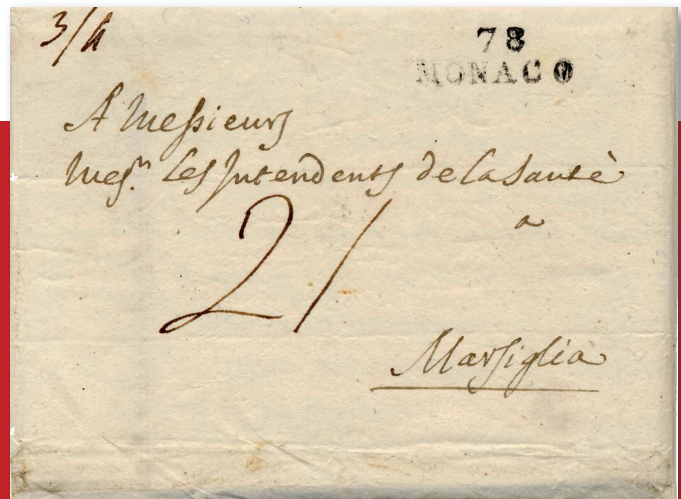 3/4
78
MONACO
A Messieurs
Mes.rs Les Intendents de la Santè
a
21
Marsiglia